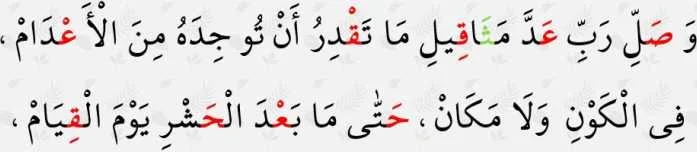 وَ صَلِّ رَبِّ عَدَّ مَثَاقِيلِ مَا تَقْدِرُ أَنْ تُو جِدَهُ مِنَ الْأَ عْدَامْ ،
فِى الْكَوْنِ وَلَا مَكَانْ ، حَتّٰى مَا بَعْدَ الْحَشْرِ يَوْمَ الْقِيَامْ ،